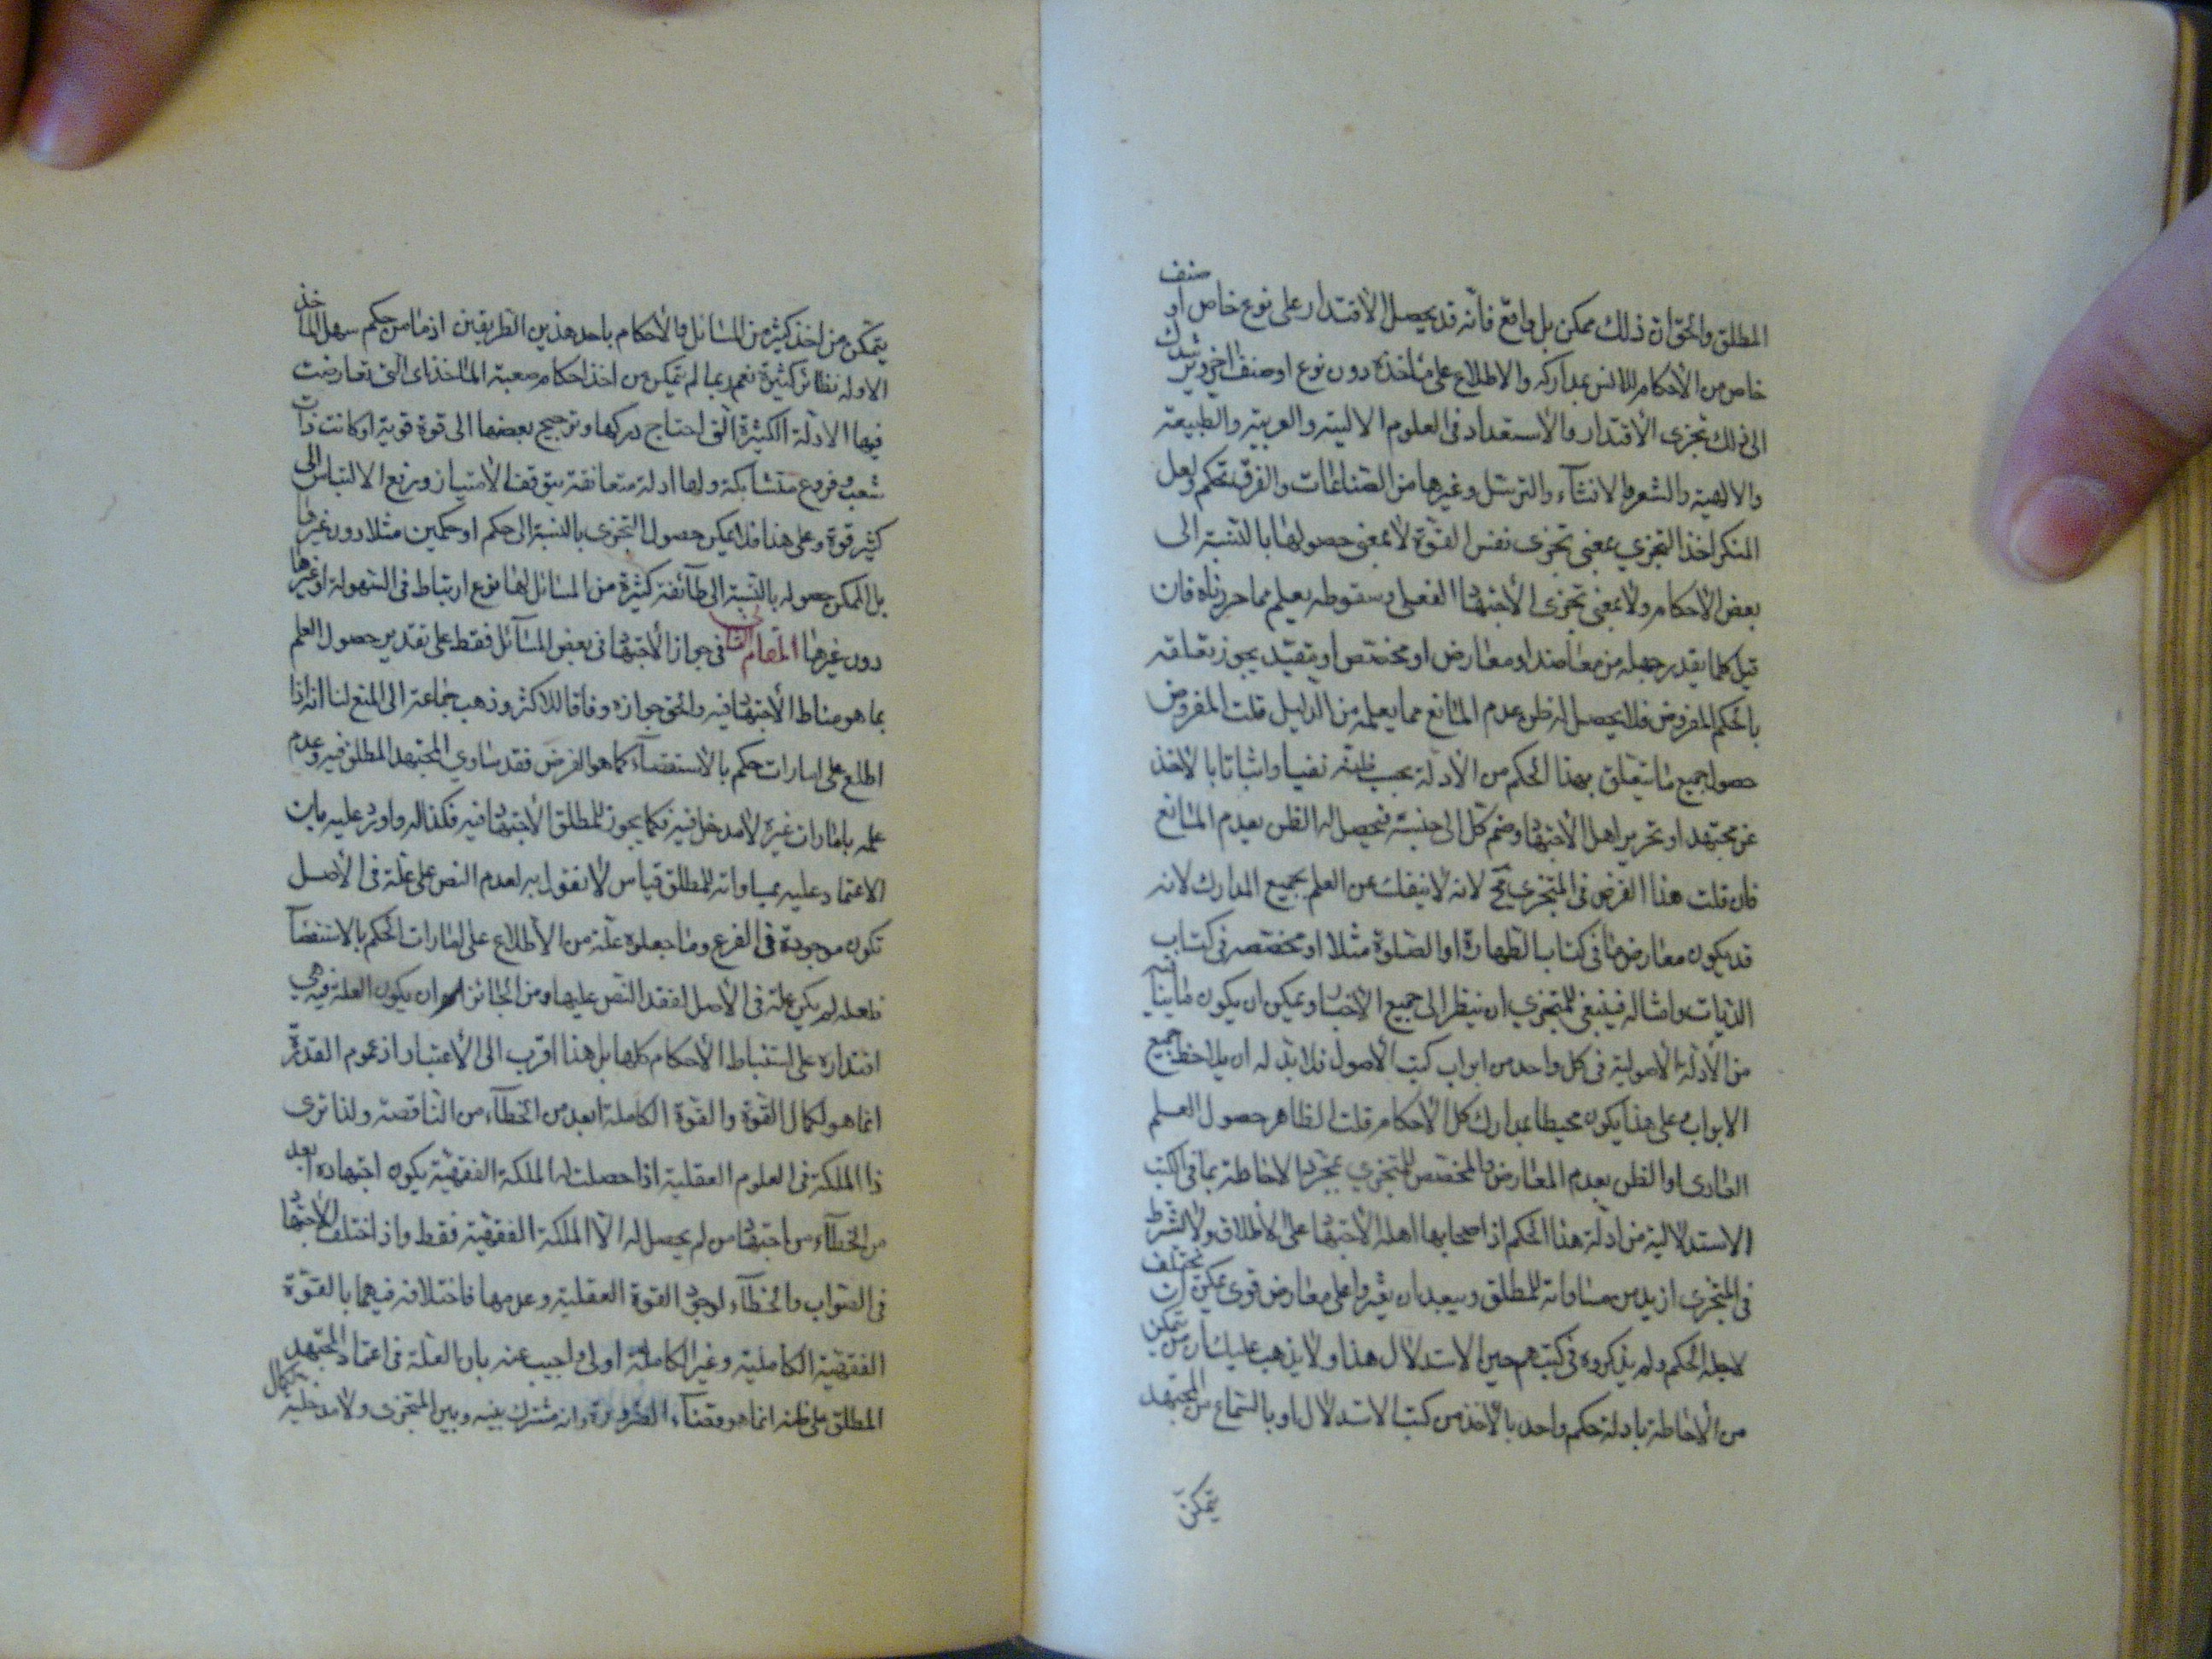 المطلق والحق ان ذلك ممكن بل واقع فانه قد يحصل الاقتدار على نوع خاص او صنف
خاص من الأحكام للانس بمداركه والاطلاع على مأخذه دون نوع او صنف اخر ويرشدك
الى ذلك تجزى الاقتدار والاستعداد فى العلوم الالية والعربية والطبيعة
والالهية والشعر والانشاء والترسل وغيرها من الصناعات والفرق تحكم ولعل
المنكر اخذ التجزي بمعنى تجزى نفس القوة لا بمعنى حصولها بالنسبة الى
بعض الأحكام ولا بمعنى تجزى الاجتهاد الفعلى وسقوطه يعلم مما حررناه فان
قيل كلما يقدر جهله من معاضد او معارض او مخصص او مقيد يجوز تعلقه
بالحكم المفروض فلا يحصل له ظن عدم المانع مما يعلمه من الدليل قلت المفروض
حصول جميع ما يتعلق بهذا الحكم من الأدلة بحسب ظنه نفيا واثباتا بالاخذ
عن مجتهد او تحرير اهل الاجتهاد وضم كل الى جنسه فيحصل له الظن بعدم المانع
فان قلت هذا الفرض فى المتجزي مح لانه لا ينفك عن العلم بجميع المدارك لانه
قد يكون معارضها فى كتاب الطهارة او الصلوة مثلا او مخصصه فى كتاب
الديات وامثاله فينبغى للمتجزي ان ينظر الى جميع الاخبار ويمكن ان يكون ما ينافيه
من الأدلة الاصولية فى كل واحد من ابواب كتب الأصول فلا بد له ان يلاحظ جميع
الابواب على هذا يكون محيطا بمدارك كل الأحكام قلت الظاهر حصول العلم
العادى او الظن بعدم المعارض والمخصص للمتجزي بمجرد الاحاطة بما فى الكتب
الاستدلالية من ادلة هذا الحكم اذا اصحابها اهل الاجتهاد على الاطلاق ولا نشترط
فى المتجزى ازيد من مساواته للمطلق ويبعد ان يعثروا على معارض قوى يمكن ان يختلف
لاجله الحكم ولم يذكروه فى كتبهم حين الاستدلال هذا ولا يذهب عليك ان من يتمكن
من الاحاطة بادلة حكم واحد بالأخذ من كتب الاستدلال او بالسماع من المجتهد
يتمكن
يتمكن من اخذ كثير من المسائل والأحكام باحد هذين الطريقين اذ ما من حكم سهل المأخذ
الا وله نظائر كثيرة نعم ربما لم يتمكن من اخذ احكام صعبة المأخذ اى التى تعارضت
فيها الادلة الكثيرة التى احتاج دركها وترجيح بعضها الى قوة قوية او كانت ذات
شعب وفروع متشابكة ولها ادلة متعانقة يتوقف الامتياز ورفع الالتباس الى
كثير قوة وعلى هذا فلا يمكن حصول التجزى بالنسبة الى حكم او حكمين مثلا دون غيرها
بل الممكن حصوله بالنسبة الى طائفة كثيرة من المسائل لها نوع ارتباط فى السهولة او غيرها
دون غيرها المقام الثانى فى جواز الاجتهاد فى بعض المسائل فقط على تقدير حصول العلم
بما هو مناط الأجتهاد فيه والحق جوازه وفاقا للاكثر وذهب جماعة الى المنع لنا انه اذا
اطلع على امارات حكم بالاستقصاء كما هو الفرض فقد ساوي المجتهد المطلق فيه وعدم
علمه بامارات غيره لا مدخل فيه فكما يجوز للمطلق الاجتهاد فيه فكذا له واورد عليه بان
الاعتماد عليه بمساواته للمطلق قياس لا نقول به لعدم النص على علة فى الأصل
تكون موجودة فى الفرع وما جعلوه علة من الأطلاع على امارات الحكم بالاستقصاء
فلعله لم يكن علة فى الأصل لفقد النص عليها ومن الجائز ان يكون العلة فيه هى
اقتداره على استنباط الأحكام كلها بل هذا اقرب الى الأعتبار اذ عموم القدرة
انما هو لكمال القوة والقوة الكاملة ابعد من الخطاء من الناقصة ولذا ترى
ذا الملكة فى العلوم العقلية اذا حصلت له الملكة الفقهية يكون اجتهاده ابعد
من الخطاء من اجتهاد من لم يحصل له الا الملكة الفقهية فقط واذ اختلف الاجتهاد
فى الصواب والخطاء لوجود القوة العقلية وعدمها فاختلافه فيهما بالقوة
الفقهية الكاملية وغير الكاملة اولى واجيب عنه بان العلة فى اعتماد المجتهد
المطلق على ظنه انما هو قضاء الضرورة وانه مشترك بينه وبين المتجزى ولا مدخلية لكمال